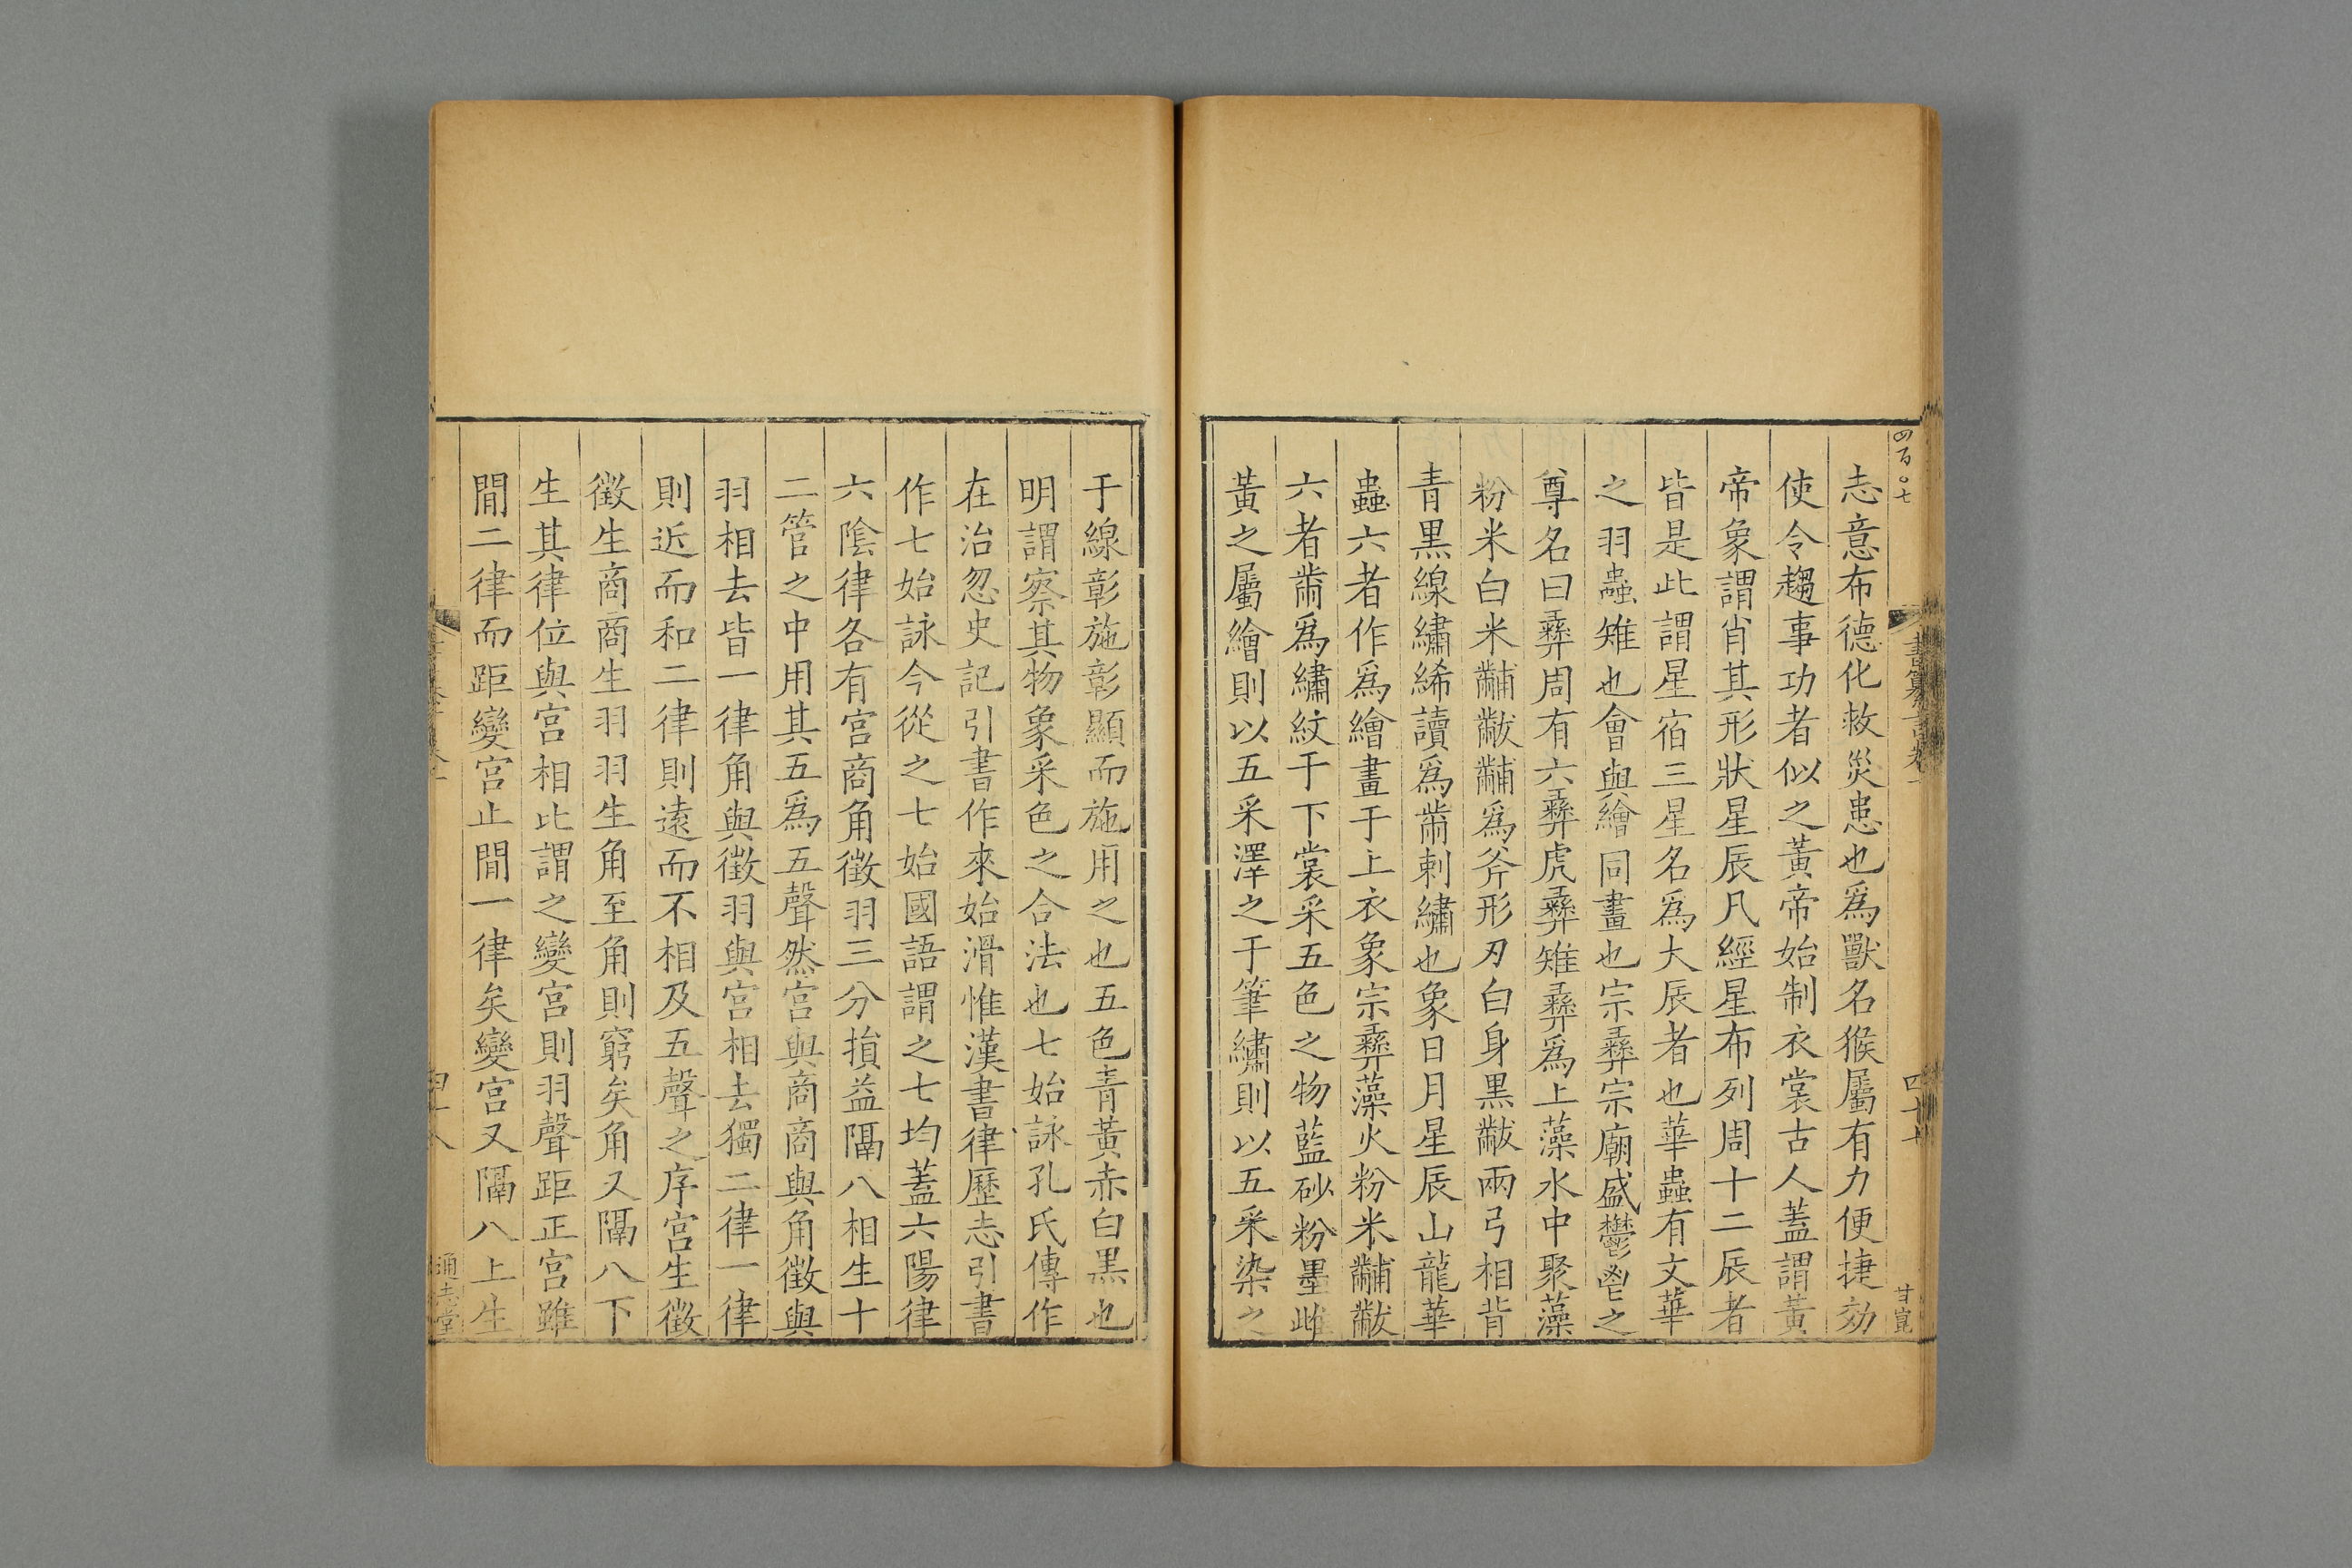 四百〇七
書纂言卷一
四十七
甘崑
志意布德化救災患也爲獸名猴屬有力便捷効
使令趨事功者似之黃帝始制衣裳古人蓋謂黃
帝象謂肖其形狀星辰凡經星布列周十二辰者
皆是此謂星宿三星名爲大辰者也華蟲有文華
之羽蟲雉也會與繪同畫也宗彝宗廟盛鬱鬯之
尊名曰彝周有六彝虎彝雉彝爲上藻水中聚藻
粉米白米黼黻黼爲斧形刃白身黑黻兩弓相背
青黑線繡絺讀爲黹刺繡也象日月星辰山龍華
蟲六者作爲繪畫于上衣象宗彝藻火粉米黼黻
六者黹爲繡紋于下裳采五色之物藍砂粉墨雌
黃之屬繪則以五采澤之于筆繡則以五采染之
于線彰施彰顯而施用之也五色青黃赤白黑也
明謂察其物象采色之合法也七始詠孔氏傳作
在治忽史記引書作來始滑惟漢書律歷志引書
作七始詠今從之七始國語謂之七均蓋六陽律
六陰律各有宮商角徵羽三分損益隔八相生十
二管之中用其五爲五聲然宮與商商與角徵與
羽相去皆一律角與徵羽與宮相去獨二律一律
則近而和二律則遠而不相及五聲之序宮生徵
徵生商商生羽羽生角至角則窮矣角又隔八下
生其律位與宮相比謂之變宮則羽聲距正宮雖
閒二律而距變宮止閒一律矣變宮又隔八上生
四十八
通志堂